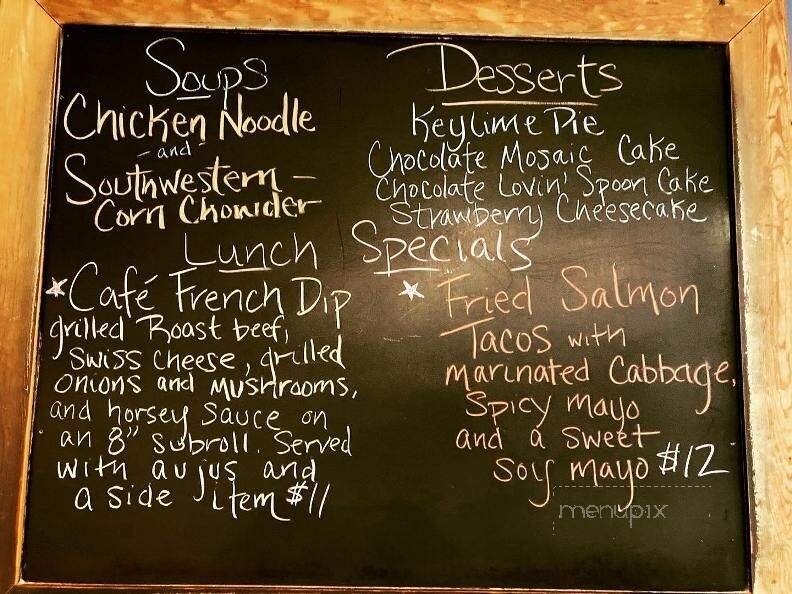 Soups
Chicken Noodle
- and -
Southwestern -
Corn Chowder
Desserts
Keylime Pie
Chocolate Mosaic Cake
Chocolate Lovin' Spoon Cake
Strawberry Cheesecake
Lunch Specials
* Café French Dip
grilled Roast beef,
Swiss cheese, grilled
onions and mushrooms,
and horsey sauce on
an 8" subroll. Served
with au jus and
a side item $11
* Fried Salmon
Tacos with
marinated Cabbage,
Spicy mayo
and a sweet
soy mayo $12
menupix